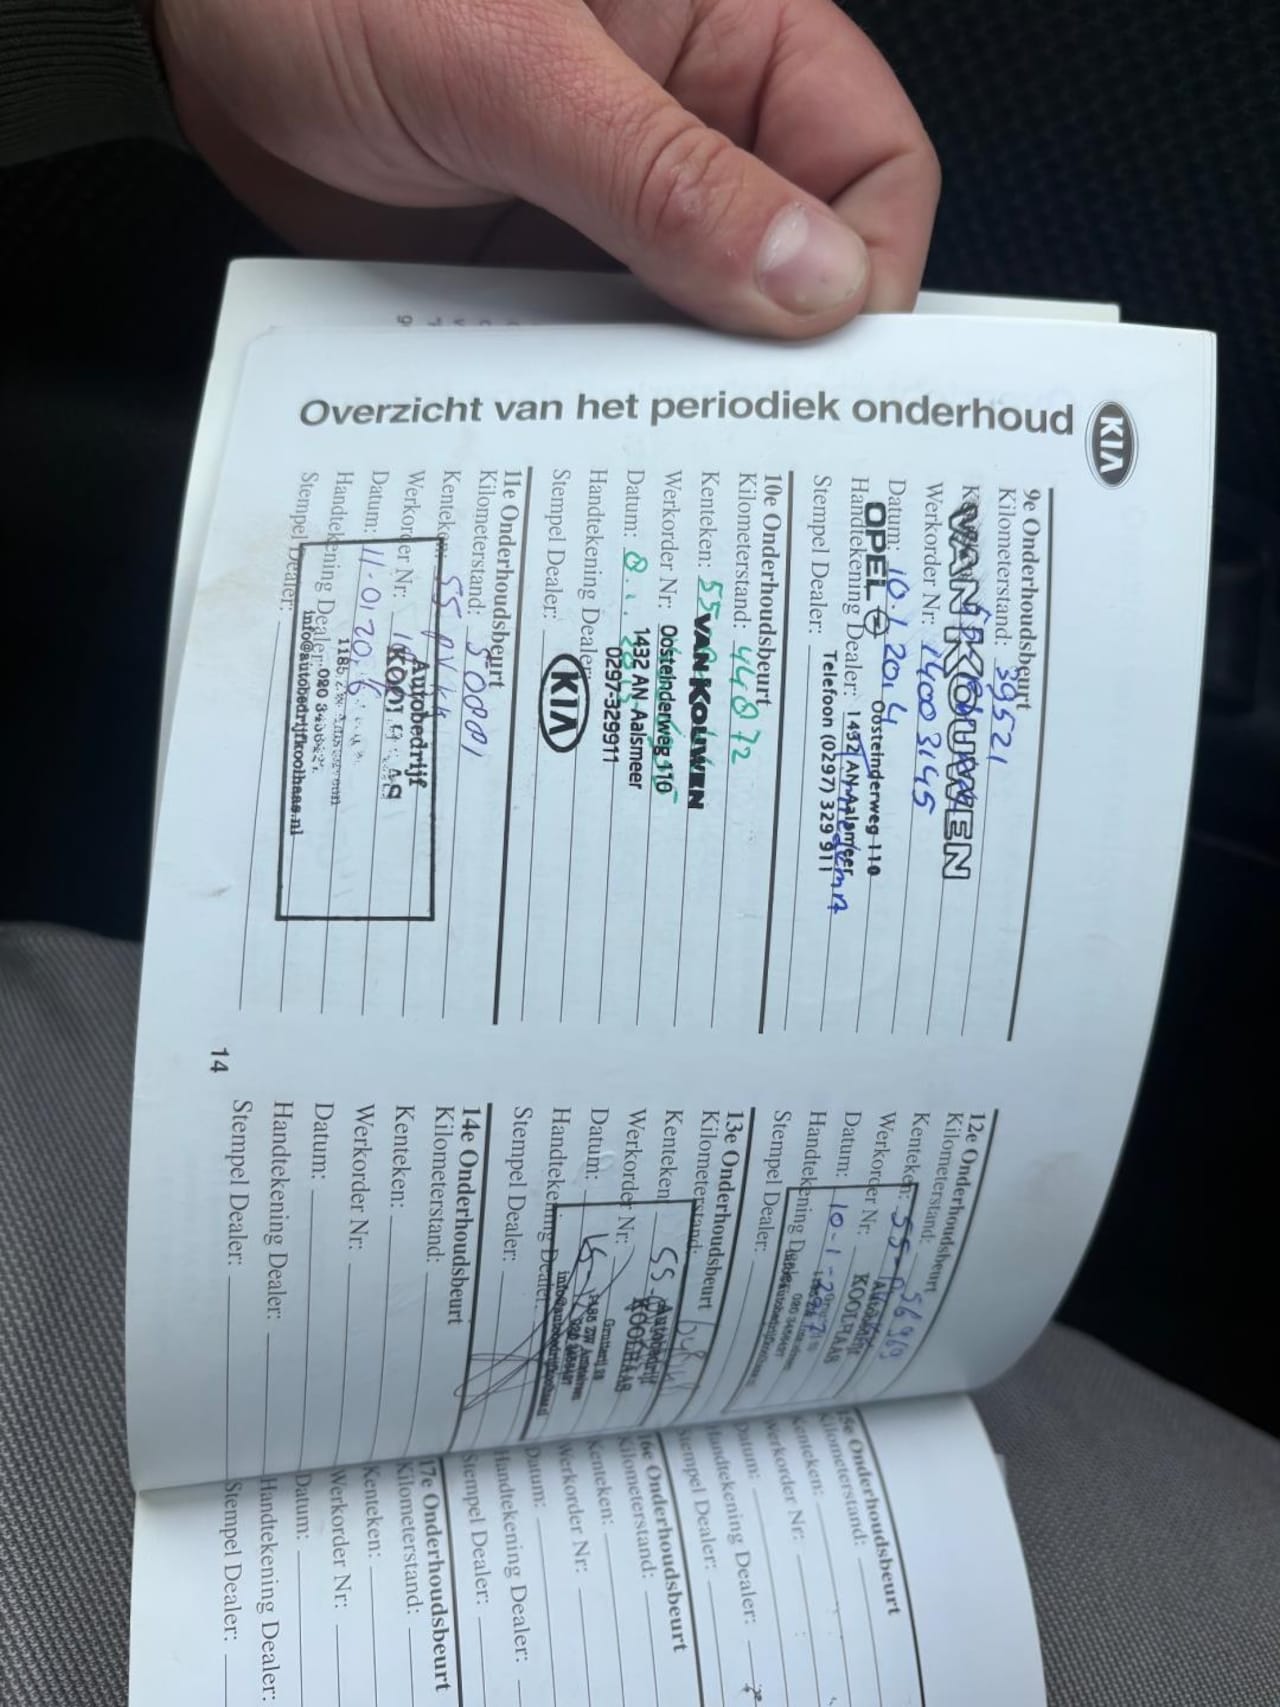 KIA
Overzicht van het periodiek onderhoud
9e Onderhoudsbeurt
Kilometerstand: 39521
VAN KOUWEN
Werkorder Nr: 14003145
Datum: 10.1.2014
OPEL
Oosteinderweg 110
Handtekening Dealer:
1432 AN Aalsmeer
Stempel Dealer:
Telefoon (0297) 329 911
10e Onderhoudsbeurt
Kilometerstand: 44872
Kenteken: 55
VAN KOUWEN
Werkorder Nr:
Oosteinderweg 110
Datum: 8.
1432 AN Aalsmeer
Handtekening Dealer:
0297-329911
Stempel Dealer:
KIA
11e Onderhoudsbeurt
Kilometerstand: 50001
Kenteken: 55
Autobedrijf
Werkorder Nr:
Datum: 11-01-2016
1185
Handtekening Dealer:
020
info@autobedrijfkoolhaas.nl
Stempel Dealer:
12e Onderhoudsbeurt
Kilometerstand: 56969
Kenteken: 55-
Werkorder Nr:
KOOLHAAS
Datum: 10-1-
Handtekening Dealer:
Stempel Dealer:
13e Onderhoudsbeurt
Kilometerstand:
Kenteken: 55-
Autobedrijf
Werkorder Nr:
KOOLHAAS
Datum:
1185 ZW
Handtekening Dealer:
Stempel Dealer:
14e Onderhoudsbeurt
Kilometerstand:
Kenteken:
Werkorder Nr:
Datum:
Handtekening Dealer:
Stempel Dealer:
14
15e Onderhoudsbeurt
Kilometerstand:
Kenteken:
Werkorder Nr:
Datum:
Handtekening Dealer:
Stempel Dealer:
16e Onderhoudsbeurt
Kilometerstand:
Kenteken:
Werkorder Nr:
Datum:
Handtekening Dealer:
Stempel Dealer:
17e Onderhoudsbeurt
Kilometerstand:
Kenteken:
Werkorder Nr:
Datum:
Handtekening Dealer:
Stempel Dealer: